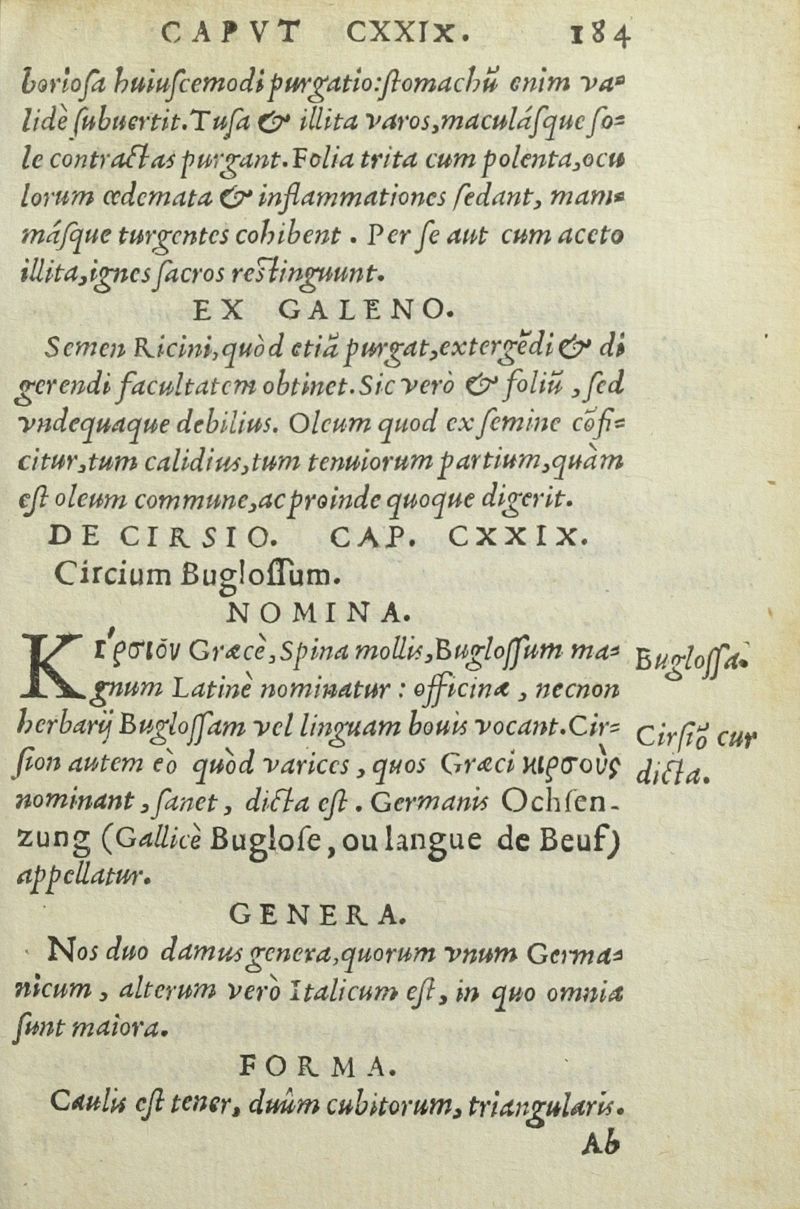 CAPVT CXXIX. 184
boriosa huiuscemodi purgatio:stomachū enim va=
lidè subuertit.Tusa & illita varos,maculásque so=
le contractas purgant.Folia trita cum polenta,ocu
lorum œdemata & inflammationes sedant, mam=
másque turgentes cohibent . Per se aut cum aceto
illita,ignes sacros restinguunt.
EX GALENO.
Semen Ricini,quòd etiā purgat,extergēdi & di
gerendi facultatem obtinet.Sic verò & foliū , sed
vndequaque debilius. Oleum quod ex semine cōfi=
citur,tum calidius,tum tenuiorum partium,quàm
est oleum commune,ac proinde quoque digerit.
DE CIRSIO. CAP. CXXIX.
Circium Buglossum.
NOMINA.
Κίρσιόν Græcè,Spina mollis,Buglossum ma= Buglossa.
gnum Latinè nominatur : officinæ , necnon
herbarij Buglossam vel linguam bouis vocant.Cir= Cirsiō cur
sion autem eò quòd varices , quos Græci κιρσοὺς dicta.
nominant , sanet , dicta est . Germanis Ochsen-
zung (Gallicè Buglose, ou langue de Beuf)
appellatur.
GENERA.
Nos duo damus genera,quorum vnum Germa=
nicum , alterum verò Italicum est, in quo omnia
sunt maiora.
FORMA.
Caulis est tener, duûm cubitorum, triangularis.
Ab